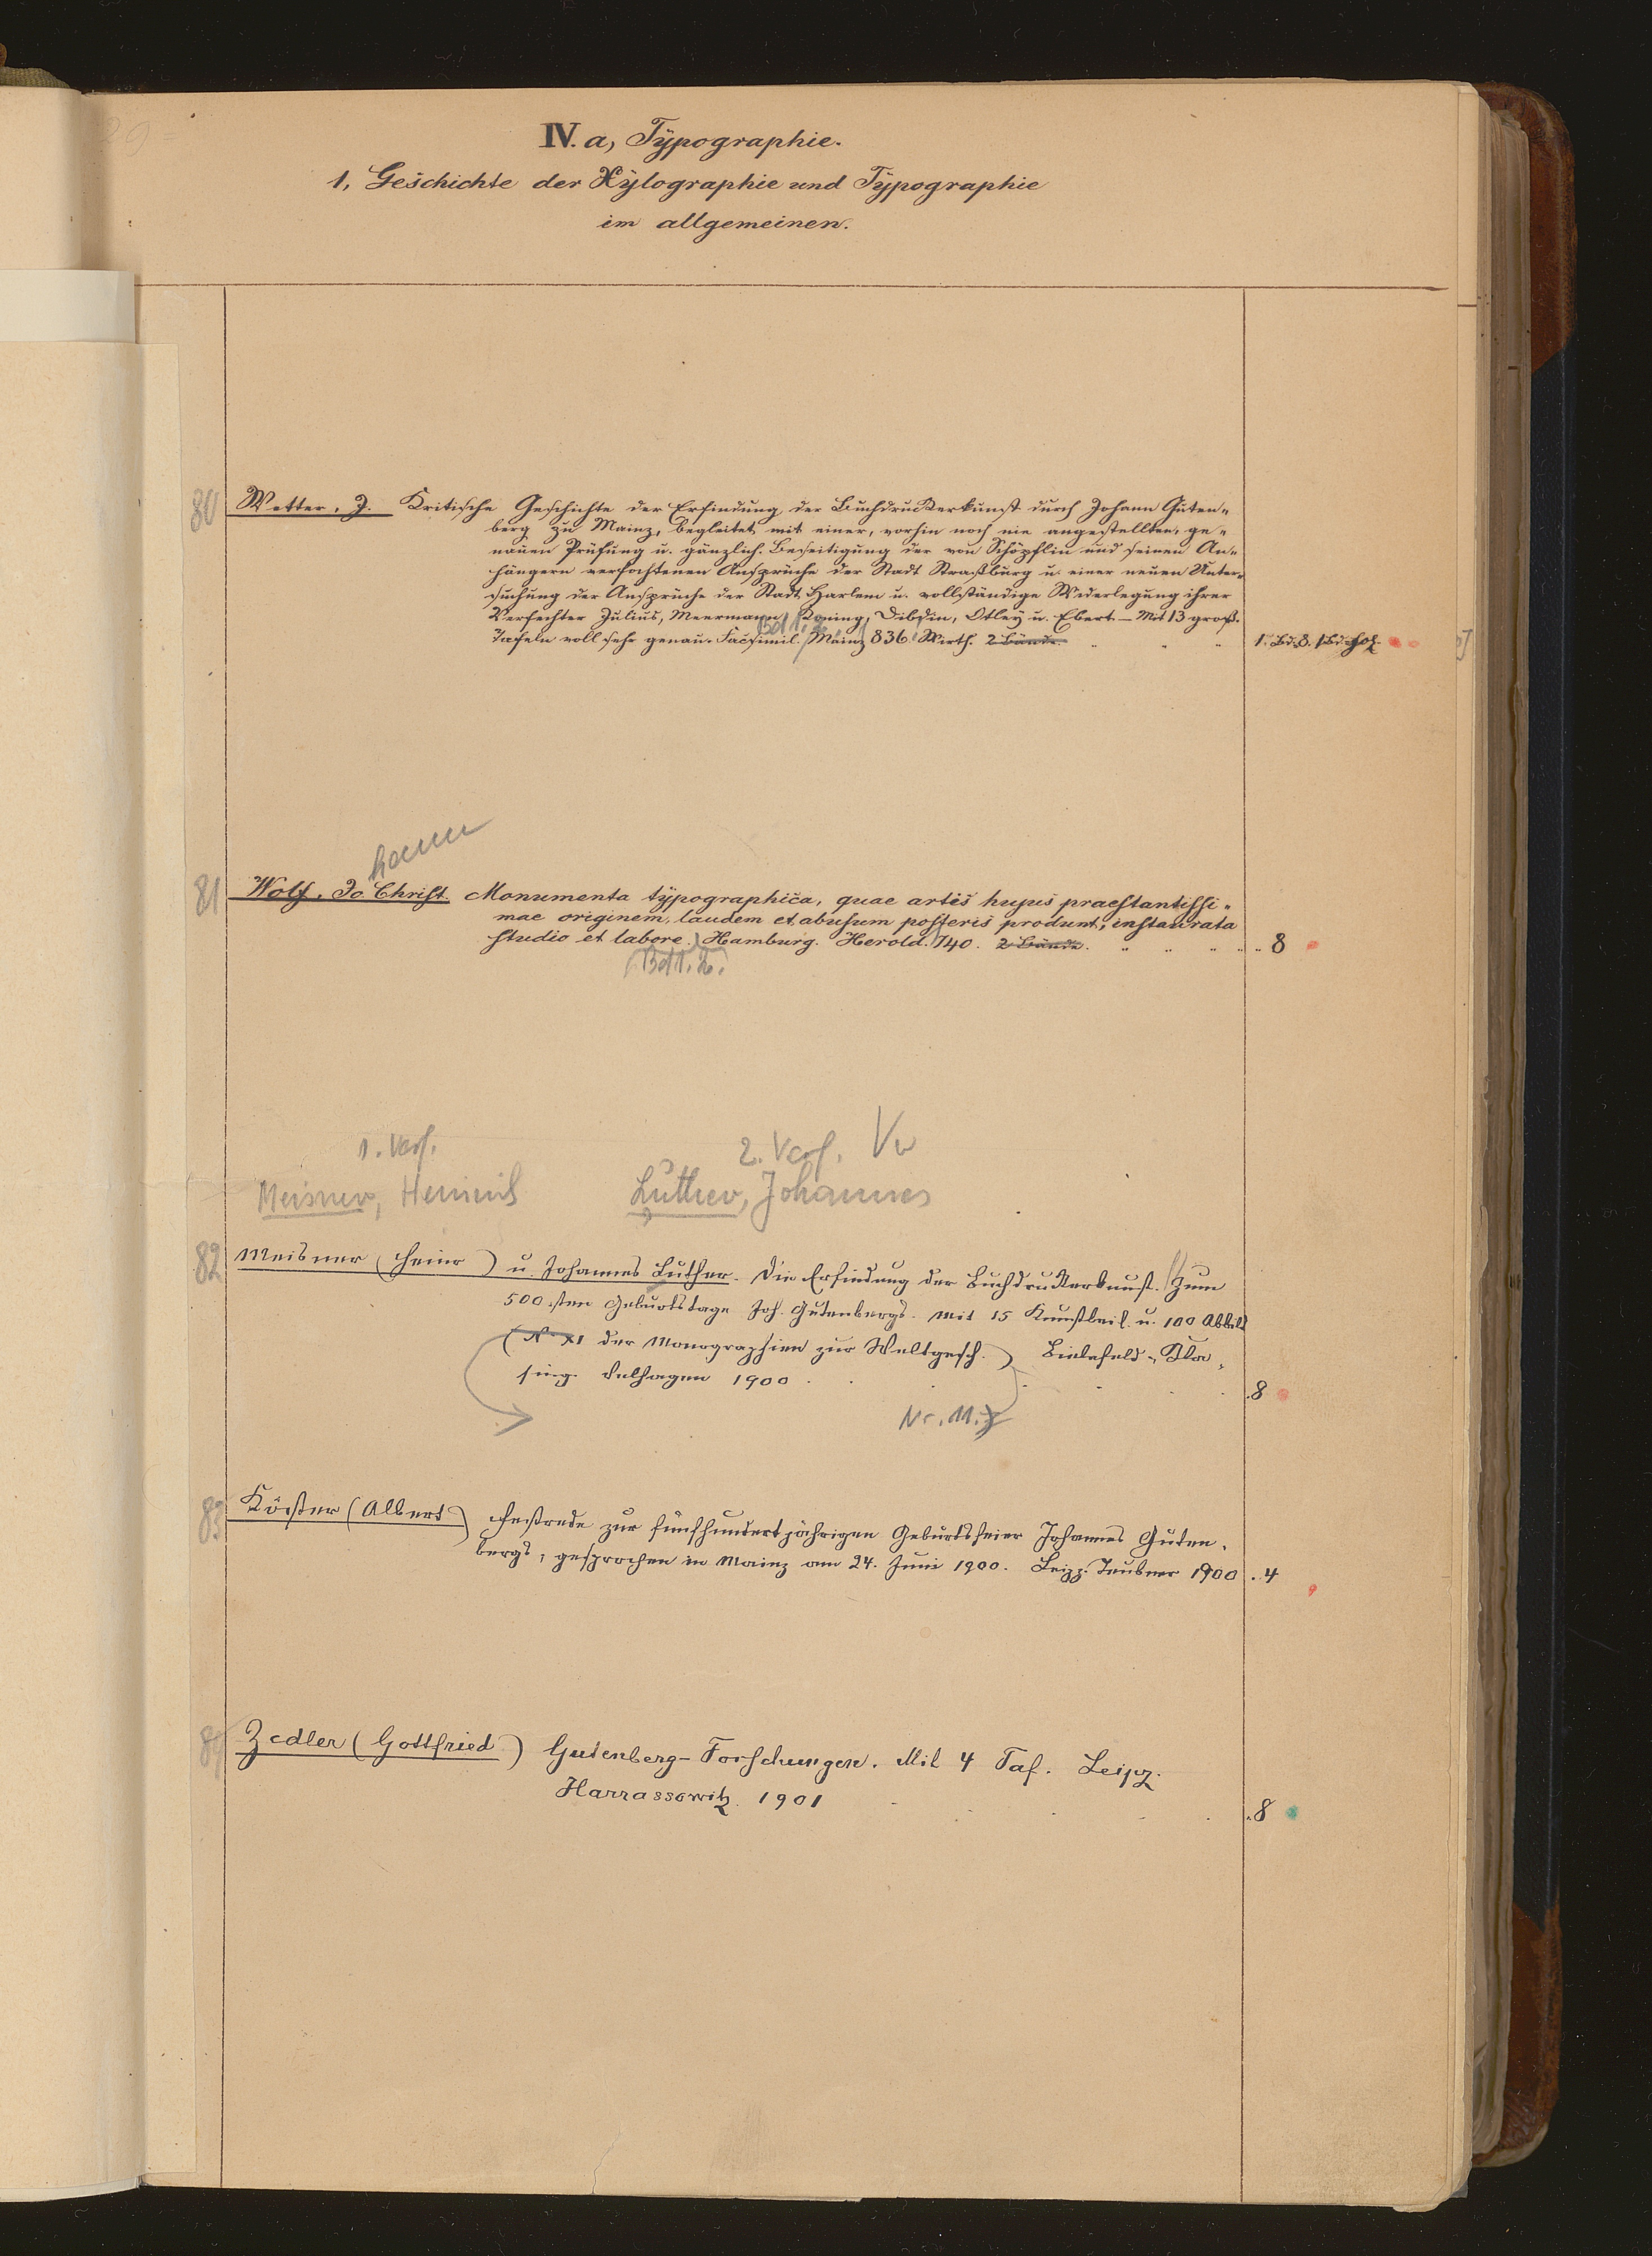 IV. a, Typographie.
1, Geschichte der Xylographie und Typographie
im allgemeinen.
80 Wetter, J. Kritische Geschichte der Erfindung der Buchdruckerkunst durch Johann Guten-
berg zu Mainz, begleitet mit einer, vorhin noch nie angestellten, ge-
nauen Prüfung u. gänzlich. Beseitigung der von Schöpflin und seinen An-
hängern verfochtenen Ansprüche der Stadt Straßburg u. einer neuen Unter-
suchung der Ansprüche der Stadt Harlem u. vollständige Widerlegung ihrer
Verfechter Julius, Meermann, Koning, Dibdin, Otley u. Ebert. – Mit 13 groß.
Bd 1. 2.
Tafeln voll sehr genau. Facsimil. Mainz 836. Wirth. 2 Bände. 1. Bd. 8. 1 Bd. fol.
hann
81 Wolf, Jo Christ. Monumenta typographica, quae artis hujus praestantissi-
mae originem, laudem et abusum posteris produnt, instaurata
studio et labore. Hamburg. Herold. 740. 2 Bände. 8
Bd 1. 2.
1. Verf. 2. Verf. Vw
Meisner, Heinrich Luther, Johannes
82 Meisner (Heinr) u. Johannes Luther. Die Erfindung der Buchdruckerkunst. Zum
500.sten Geburtstage Joh. Gutenbergs. Mit 15 Kunstbeil. u. 100 Abbild
(No XI der Monographien zur Weltgesch.) Bielefeld, Kla-
sing Velhagen 1900 8
Nr. 11.)
83 Köster (Albert) Festrede zur fünfhundertjährigen Geburtsfeier Johannes Guten-
bergs, gesprochen in Mainz am 24. Juni 1900. Leipz. Teubner 1900 4
84 Zedler (Gottfried) Gutenberg-Forschungen. Mit 4 Taf. Leipz.
Harrassowitz. 1901 8